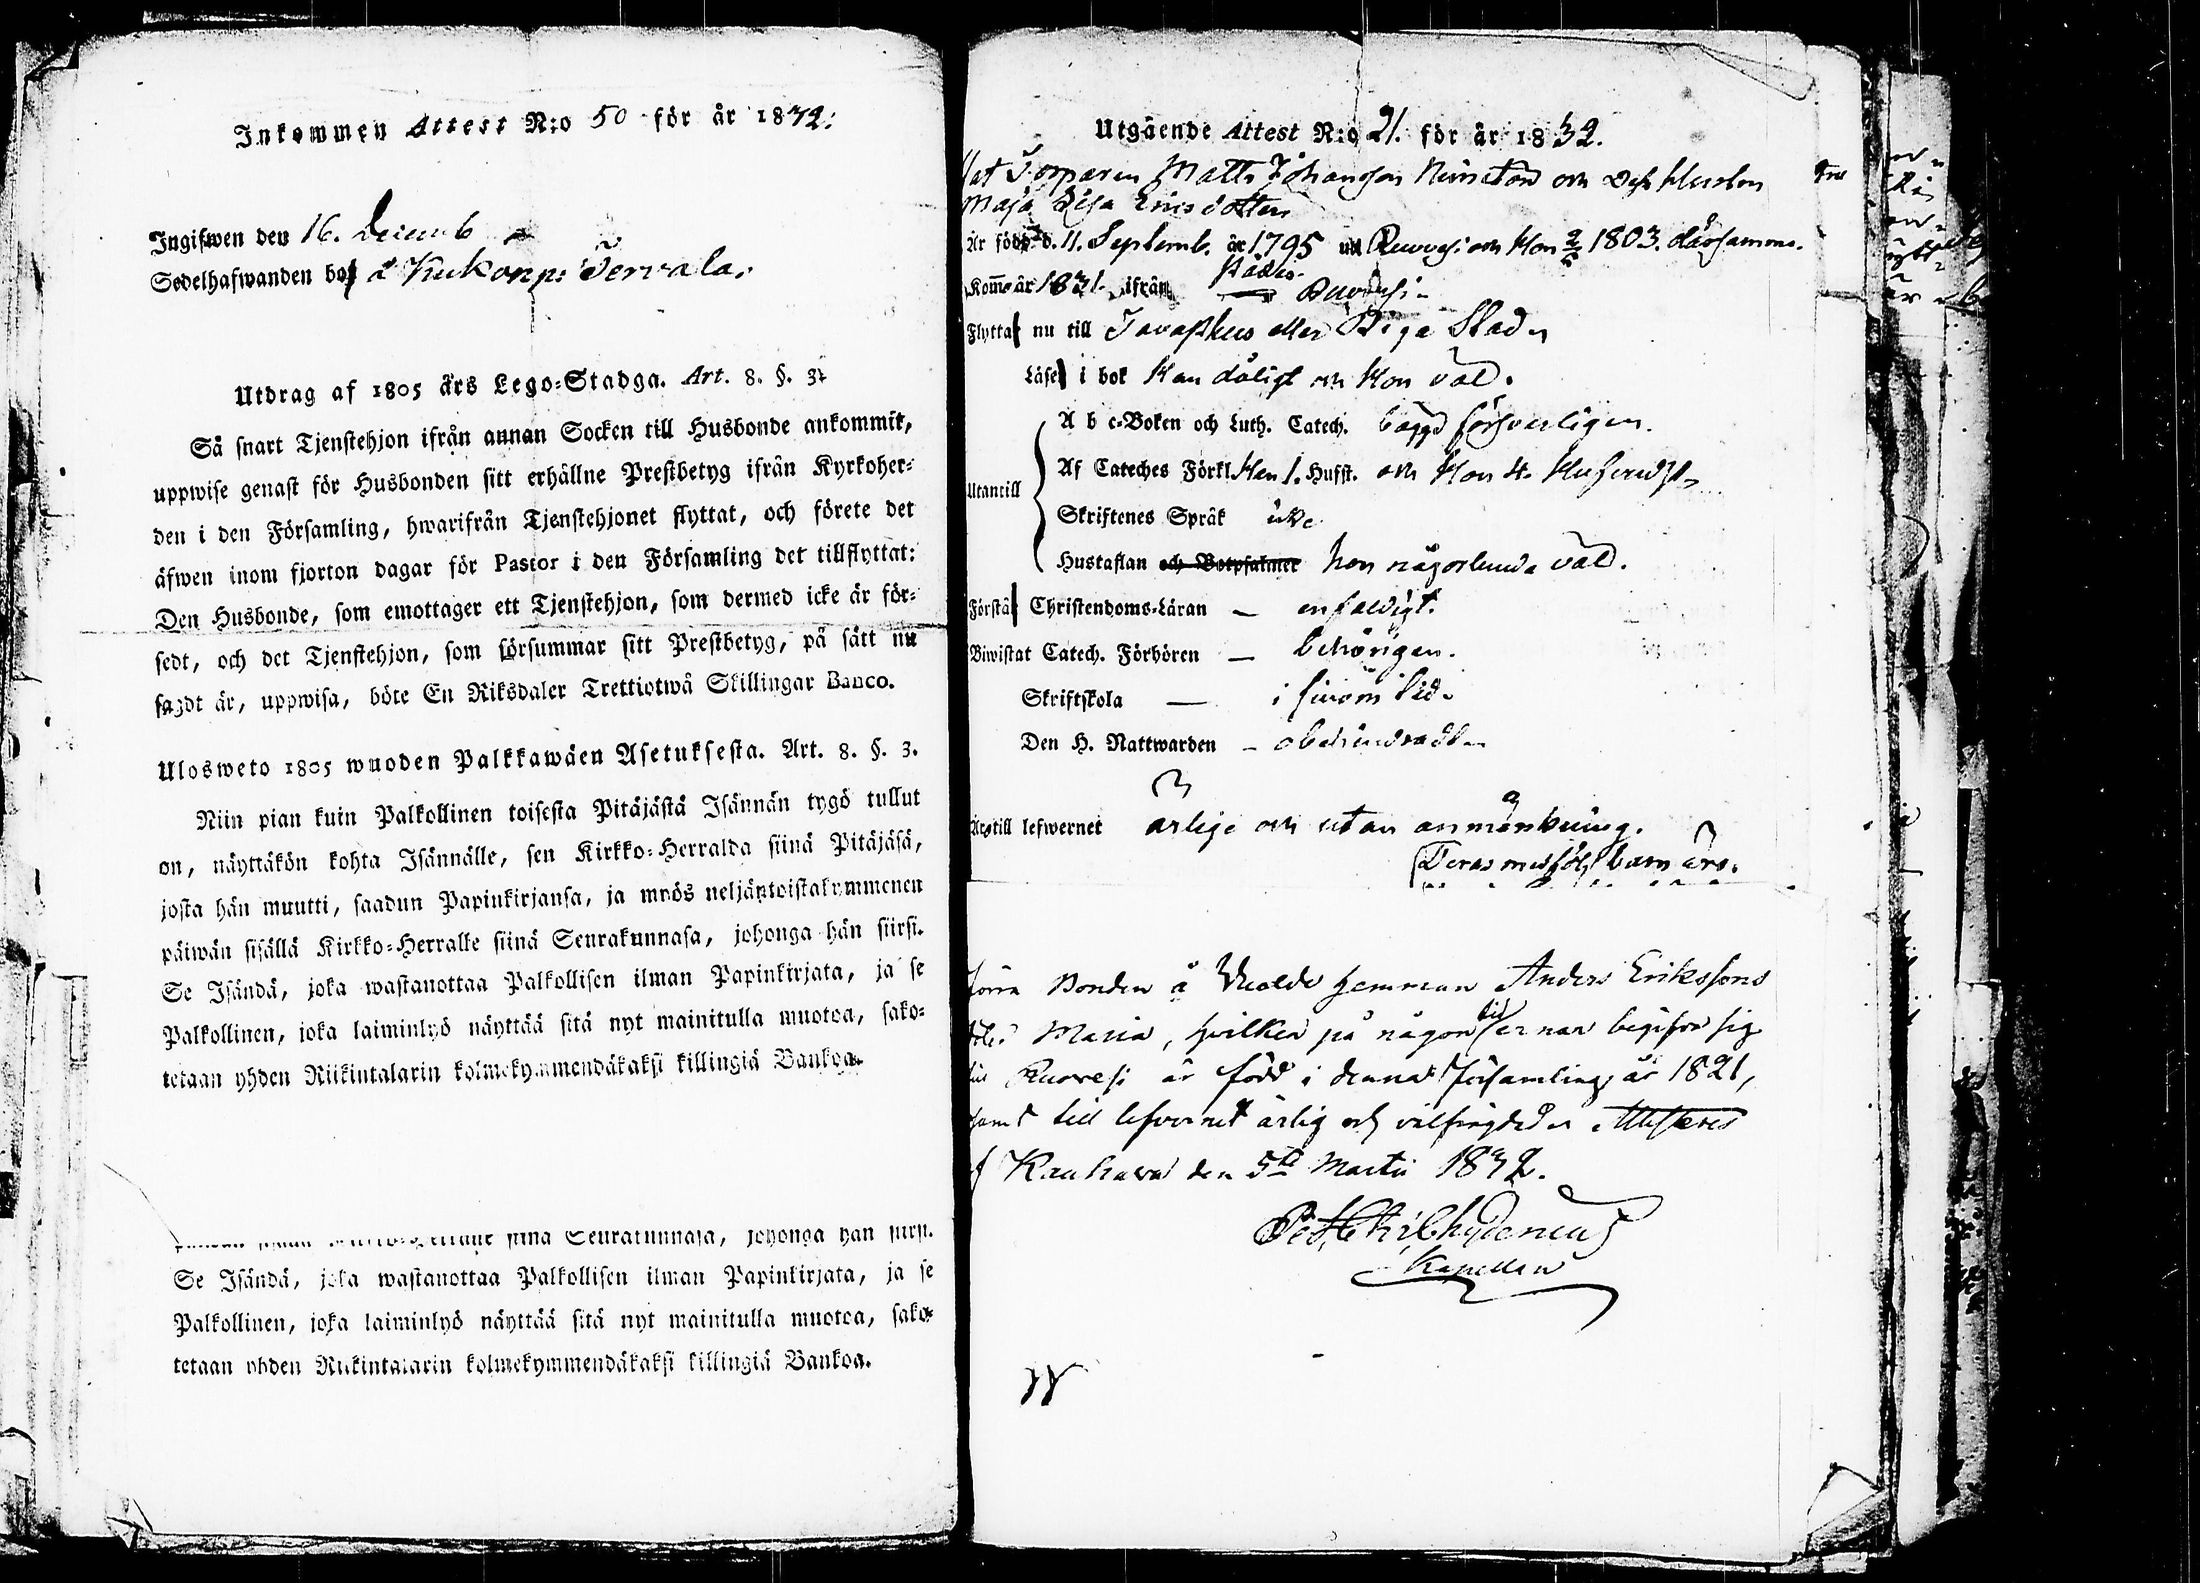 Inkommen Attest N:o 50 för år 1832.
Ingifwen den 16. Decemb
Sedelhafwanden bor å Kukonp: Tervala.
Utdrag af 1805 års Lego-Stadga. Art. 8. §. 3.
Så snart Tjenstehjon ifrån annan Socken till Husbonde ankommit,
uppwise genast för Husbonden sitt erhållne Prestbetyg ifrån Kyrkoher-
den i den Församling, hwarifrån Tjenstehjonet flyttat, och förete det
äfwen inom fjorton dagar för Pastor i den Församling det tillflyttat:
Den Husbonde, som emottager ett Tjenstehjon, som dermed icke är för-
sedt, och det Tjenstehjon, som försummar sitt Prestbetyg, på sätt nu
sagdt är, uppwisa, böte En Riksdaler Trettiotwå Skillingar Banco.
Ulosweto 1805 wuoden Palkkawäen Asetuksesta. Art. 8. §. 3.
Niin pian kuin Palkollinen toisesta Pitäjästä Isännän tygö tullut
on, näyttäkön kohta Isännälle, sen Kirkko-Herralda siinä Pitäjäsä,
josta hän muutti, saadun Papinkirjansa, ja myös neljäntoistakymmenen
päiwän sisällä Kirkko-Herralle siinä Seurakunnasa, johonga hän siirsi.
Se Isändä, joka wastanottaa Palkollisen ilman Papinkirjata, ja se
Palkollinen, joka laiminlyö näyttää sitä nyt mainitulla muotoa, sako-
tetaan yhden Riikintalarin kolmekymmendäkaksi killingiä Bankoa.
siinä Seurakunnasa, johonga hän siirsi.
Se Isändä, joka wastanottaa Palkollisen ilman Papinkirjata, ja se
Palkollinen, joka laiminlyö näyttää sitä nyt mainitulla muotoa, sako-
tetaan yhden Riikintalarin kolmekymmendäkaksi killingiä Bankoa.
Utgående Attest N:o 21. för år 1832.
at Torparen Matts Johansson och dess Hustru
Maja Lisa Ericsdotter
Är födde d. 11. Septemb. år 1795 uti Ruovesi och Hon 1803. därsamma.
Komne år 1831. ifrån Ruovesi
Flytta nu till Tavasthus eller Riga Stad
Läser i bok Han dåligt och Hon väl.
Utantill
A b c-Boken och Luth. Catech. bägge försvarligen.
Af Cateches Förkl. Han 1. Hufst. och Hon 4. Hufvudst.
Skriftenes Språk icke
Hustaflan och Botpsalmer hon någorlunda väl.
Förstå Christendoms-Läran — enfaldigt.
Biwistat Catech. Förhören — behörigen.
Skriftskola — i sinom tid.
Den H. Nattwarden — obehindradt
Äro till lefwernet ärlige och utan anmärkning.
Deras medföl: barn äro.
Bonden å hemman Anders Erikssons
Maria, hvilken på någon tid ernar begifva sig
till Ruovesi är född i denna Församling år 1821,
samt till lefvernet ärlig och välfrägdad Attesteres
af Kauhava den 5te Martii 1832.
Chydenius
Kapellan